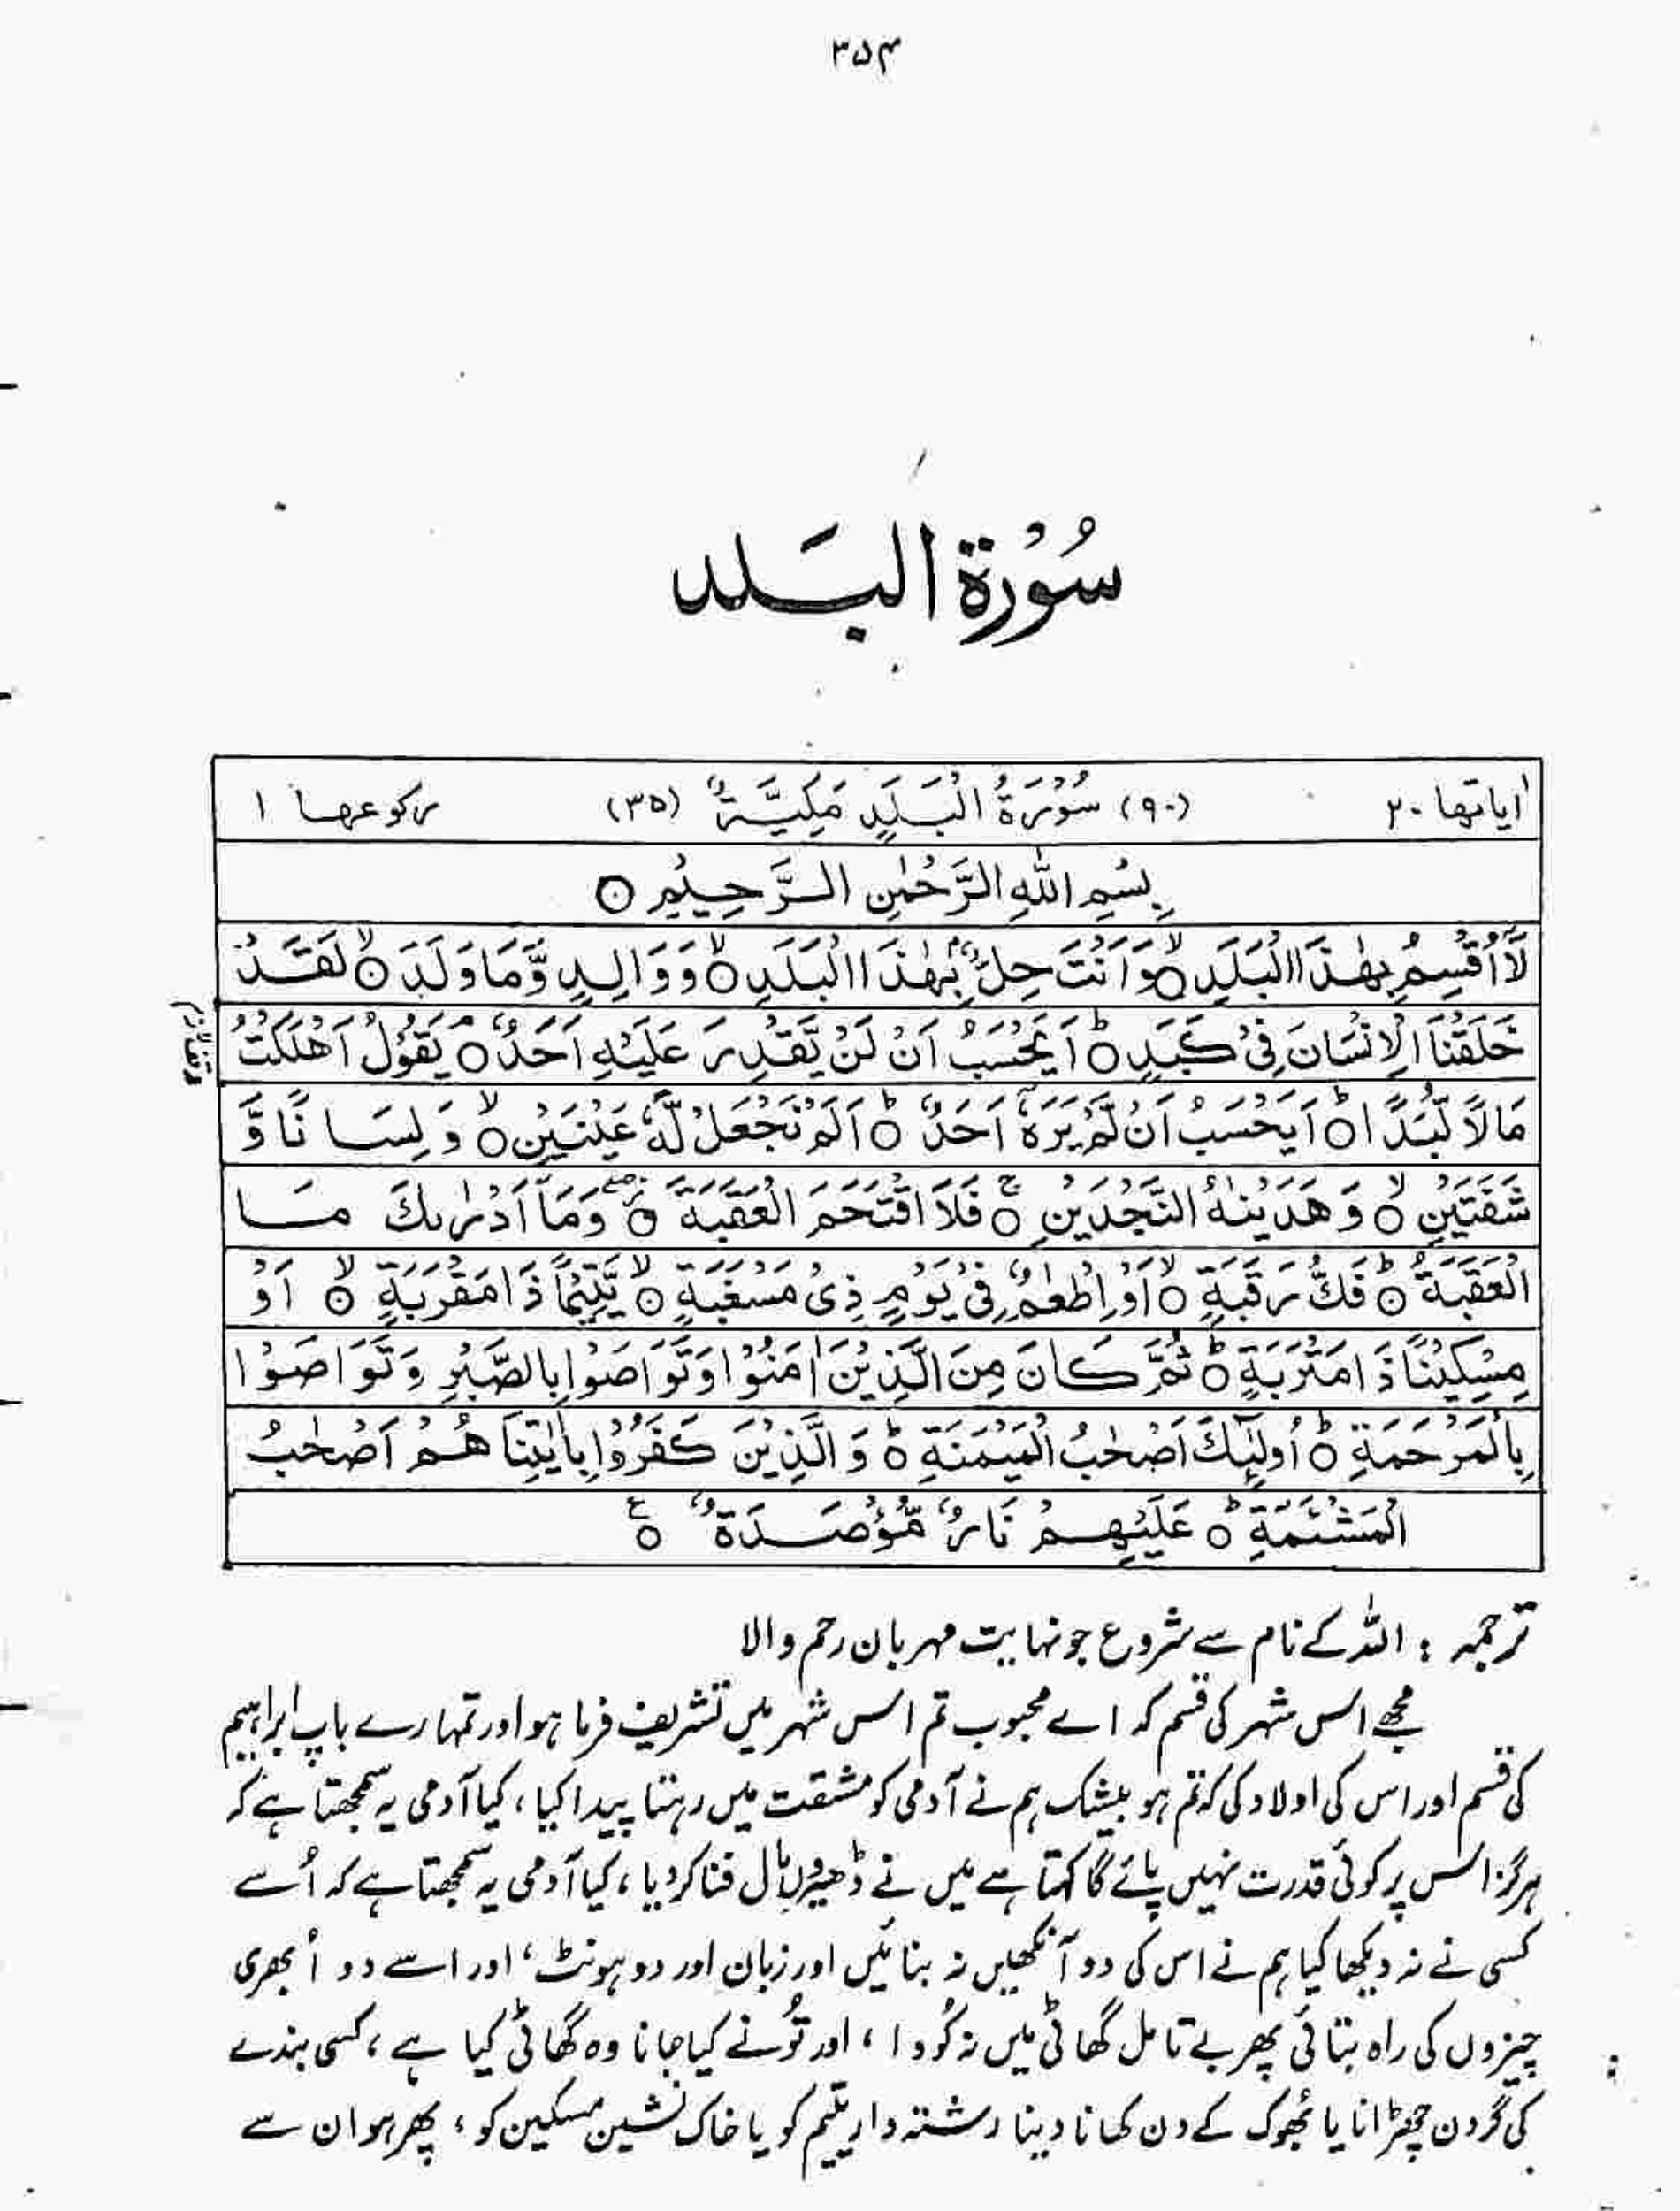 ۳۵۴
سُوْرۃ البَلد
اٰیاتھا ۲۰ (۹۰) سُوْرَۃُ الْبَلَدِ مَکِّیَّۃٌ (۳۵) رکوعھا ۱
بِسْمِ اللّٰهِ الرَّحْمٰنِ الرَّحِیْمِ ○
لَاۤ اُقْسِمُ بِهٰذَا الْبَلَدِ ○ۙ وَاَنْتَ حِلٌّۢ بِهٰذَا الْبَلَدِ ○ۙ وَوَالِدٍ وَّمَا وَلَدَ ○ۙ لَقَدْ
خَلَقْنَا الْاِنْسَانَ فِیْ کَبَدٍ ○ؕ اَیَحْسَبُ اَنْ لَّنْ یَّقْدِرَ عَلَیْهِ اَحَدٌ ○ۘ یَقُوْلُ اَهْلَکْتُ
مَالًا لُّبَدًا ○ؕ اَیَحْسَبُ اَنْ لَّمْ یَرَهٗۤ اَحَدٌ ○ؕ اَلَمْ نَجْعَلْ لَّهٗ عَیْنَیْنِ ○ۙ وَلِسَانًا وَّ
شَفَتَیْنِ ○ۙ وَهَدَیْنٰهُ النَّجْدَیْنِ ○ۚ فَلَا اقْتَحَمَ الْعَقَبَةَ ○ۖ وَمَاۤ اَدْرٰىكَ مَا
الْعَقَبَةُ ○ؕ فَكُّ رَقَبَةٍ ○ۙ اَوْ اِطْعٰمٌ فِیْ یَوْمٍ ذِیْ مَسْغَبَةٍ ○ۙ یَّتِیْمًا ذَا مَقْرَبَةٍ ○ۙ اَوْ
مِسْکِیْنًا ذَا مَتْرَبَةٍ ○ؕ ثُمَّ کَانَ مِنَ الَّذِیْنَ اٰمَنُوْا وَتَوَاصَوْا بِالصَّبْرِ وَتَوَاصَوْا
بِالْمَرْحَمَةِ ○ؕ اُولٰٓئِكَ اَصْحٰبُ الْمَیْمَنَةِ ○ؕ وَالَّذِیْنَ کَفَرُوْا بِاٰیٰتِنَا هُمْ اَصْحٰبُ
الْمَشْئَمَةِ ○ؕ عَلَیْهِمْ نَارٌ مُّؤْصَدَةٌ ○ۧ
ترجمہ : اللہ کے نام سے شروع جو نہایت مہربان رحم والا
مجھے اس شہر کی قسم کہ اے محبوب تم اس شہر میں تشریف فرما ہو اور تمہارے باپ ابراہیم
کی قسم اور اس کی اولاد کی کہ تم ہو بیشک ہم نے آدمی کو مشقت میں رہتا پیدا کیا ، کیا آدمی یہ سمجھتا ہے کہ
ہرگز اس پر کوئی قدرت نہیں پائے گا کہتا ہے میں نے ڈھیروں مال فنا کر دیا ، کیا آدمی یہ سمجھتا ہے کہ اُسے
کسی نے نہ دیکھا کیا ہم نے اس کی دو آنکھیں نہ بنائیں اور زبان اور دو ہونٹ ، اور اسے دو اُبھری
چیزوں کی راہ بتائی پھر بے تامل گھاٹی میں نہ کُودا ، اور تُو نے کیا جانا وہ گھاٹی کیا ہے ، کسی بندے
کی گردن چھڑانا یا بُھوک کے دن کھانا دینا رشتہ دار یتیم کو یا خاک نشین مسکین کو ، پھر ہو ان سے